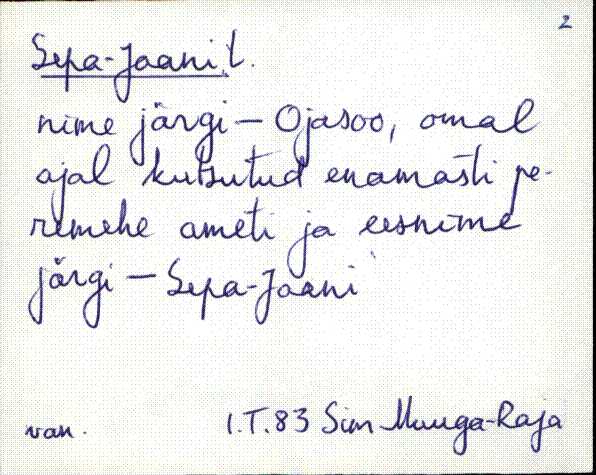 2
Sepa-Jaani t.
nime järgi – Ojasoo, omal
ajal kutsutud enamasti pe-
remehe ameti ja eesnime
järgi – Sepa-Jaani
van. I.T.83 Sim Muuga-Raja